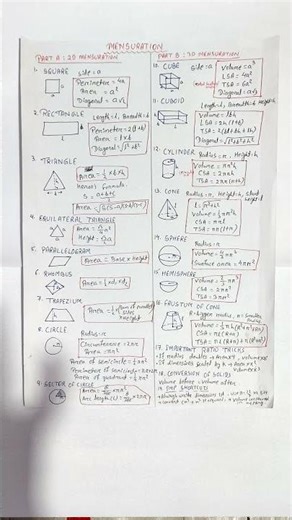 MENSURATION
PART A : 2D MENSURATION
1. SQUARE
Side = a
Perimeter = 4a
Area = a²
Diagonal = a√2
2. RECTANGLE
Length = l, Breadth = b
Perimeter = 2(l+b)
Area = l×b
Diagonal = √l²+b²
3. TRIANGLE
Area = ½×b×h
Heron's Formula
S = a+b+c/2
Area = √s(s-a)(s-b)(s-c)
4. EQUILATERAL TRIANGLE
Area = √3/4 a²
Height = √3/2 a
5. PARALLELOGRAM
Area = Base × height
6. RHOMBUS
Area = ½×d₁×d₂
7. TRAPEZIUM
Area = ½ × (Sum of parallel sides) × height
8. CIRCLE
Radius = r
Circumference = 2πr
Area = πr²
Area of semicircle = ½πr²
Perimeter of semicircle =
Area of quadrant = ¼πr²
9. SECTOR OF CIRCLE
Area = πr²
Arc length (l) = 2πr
PART B : 3D MENSURATION
10. CUBE
Side = a
Volume = a³
LSA = 4a²
TSA = 6a²
Diagonal = a√3
11. CUBOID
Length = l, Breadth = b, Height = h
Volume = lbh
LSA = 2h(l+b)
TSA = 2(lb+bh+hl)
Diagonal = √l²+b²+h²
12. CYLINDER
Radius = r, Height = h
Volume = πr²h
CSA = 2πrh
TSA = 2πr(r+h)
13. CONE
Radius = r, Height = h, Slant height = l
l = √r²+h²
Volume = ⅓πr²h
CSA = πrl
TSA = πr(r+l)
14. SPHERE
Radius = r
Volume = 4/3 πr³
Surface area = 4πr²
15. HEMISPHERE
Volume = ⅔πr³
CSA = 2πr²
TSA = 3πr²
16. FRUSTUM OF CONE
R = bigger radius, r = smaller
Volume = ⅓πh(R²+r²+Rr)
CSA = πl(R+r)
TSA = πl(R+r)+π(R²+r²)
17. IMPORTANT RATIO TRICKS
If radius doubles → Area × 4, Volume × 8
18. CONVERSION OF SOLIDS
Volume before = Volume after